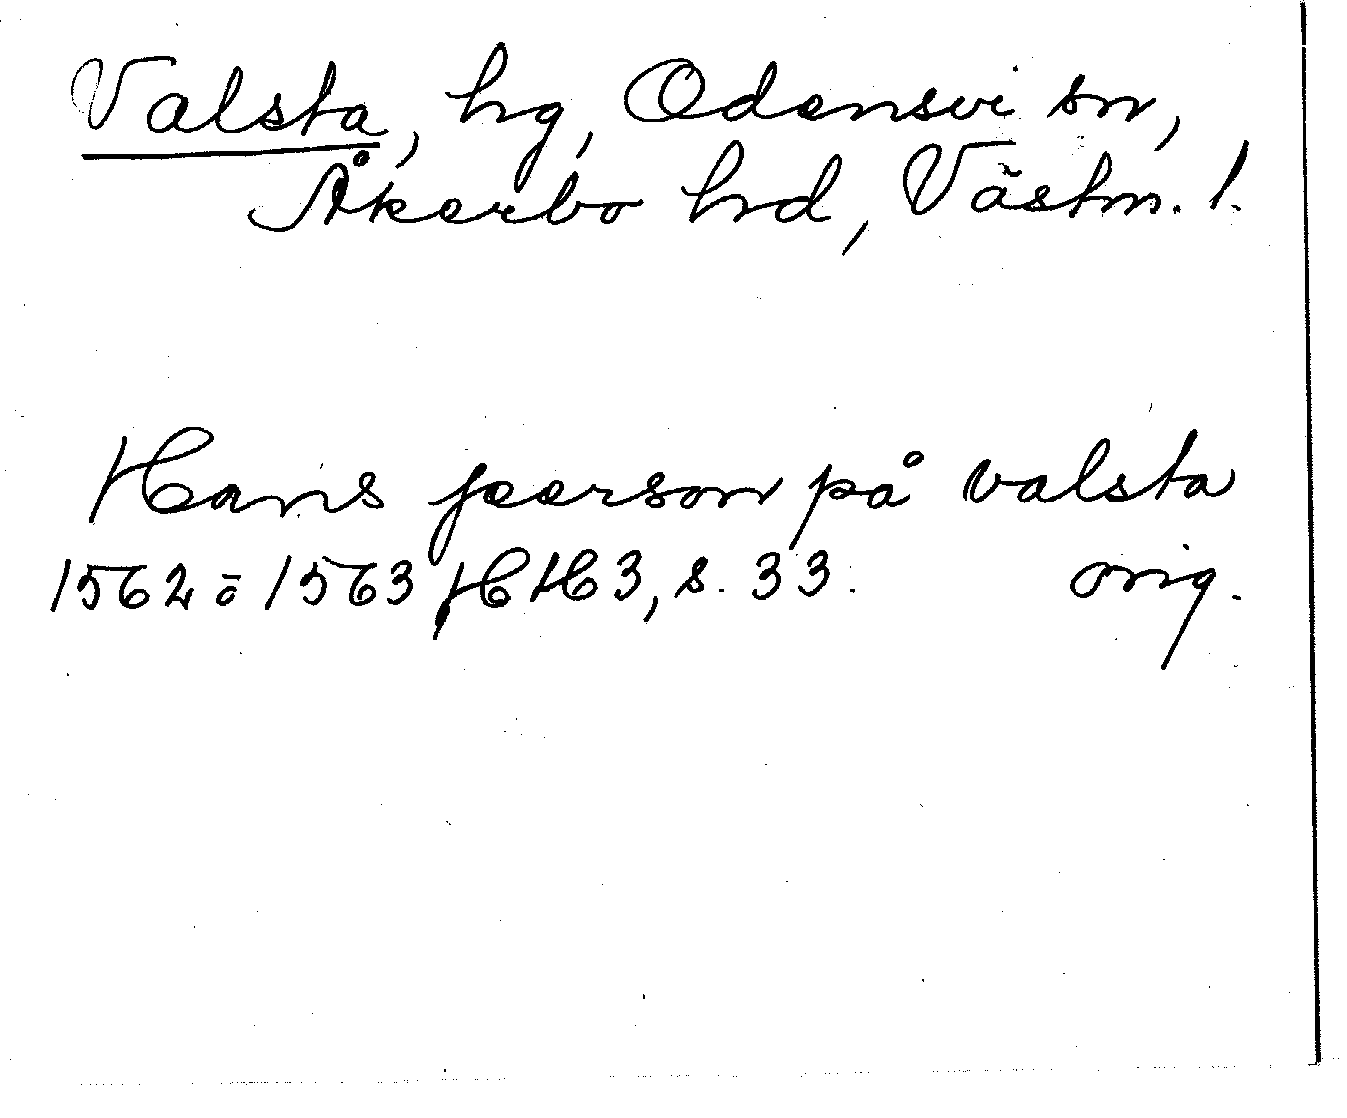 Valsta, hg, Odensvi sn,
Åkerbo hrd, Västm. l.
Hans peerson på valsta
1562 ō 1563 HH3, s. 33. orig.